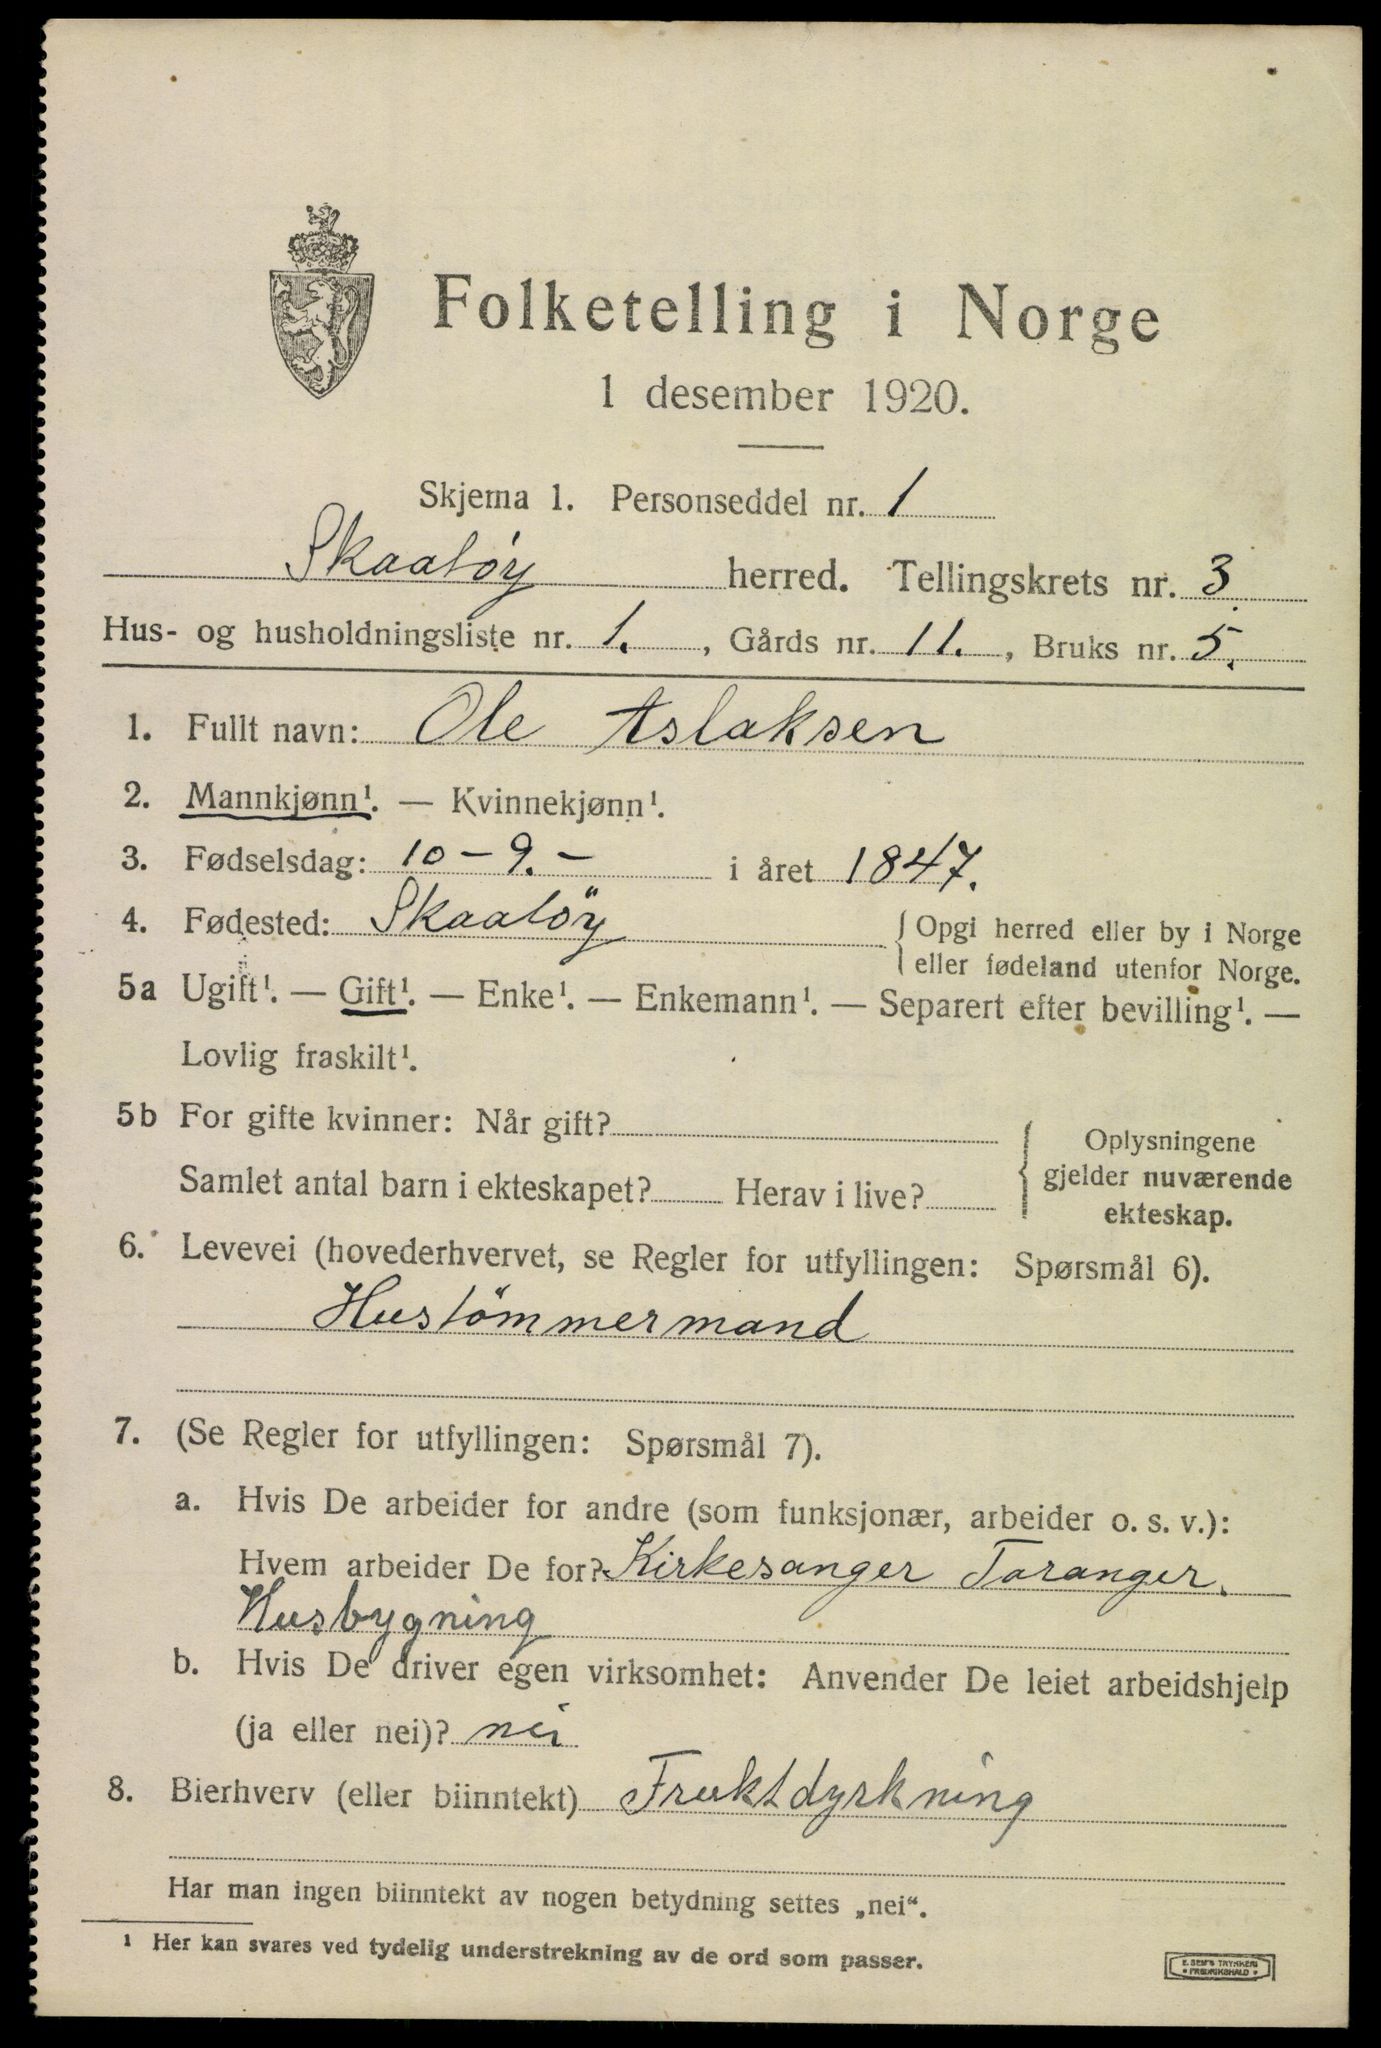 Folketelling i Norge
1 desember 1920.
Skjema 1. Personseddel nr. 1
Skaatöy herred. Tellingskrets nr. 3.
Hus- og husholdningsliste nr. 1. , Gårds nr. 11. , Bruks nr. 5.
1. Fullt navn: Ole Aslaksen
2. Mannkjønn¹. — Kvinnekjønn¹.
3. Fødselsdag: 10 - 9. - i året 1847.
4. Fødested: Skaatöy { Opgi herred eller by i Norge
eller fødeland utenfor Norge.
5a Ugift¹. — Gift¹. — Enke¹. — Enkemann¹. — Separert efter bevilling¹. —
Lovlig fraskilt¹.
5b For gifte kvinner: Når gift?
Samlet antal barn i ekteskapet? Herav i live?
{ Oplysningene
gjelder nuværende
ekteskap.
6. Levevei (hovederhvervet, se Regler for utfyllingen: Spørsmål 6).
Hustömmermand
7. (Se Regler for utfyllingen: Spørsmål 7).
a. Hvis De arbeider for andre (som funksjonær, arbeider o. s. v.):
Hvem arbeider De for? Kirkesanger Taranger.
Husbygning
b. Hvis De driver egen virksomhet: Anvender De leiet arbeidshjelp
(ja eller nei)? nei
8. Bierhverv (eller biinntekt) Fruktdyrkning
Har man ingen biinntekt av nogen betydning settes „nei“.
1 Her kan svares ved tydelig understrekning av de ord som passer.
E. SEM'S TRYKKERI
• FREDRIKSHALD •